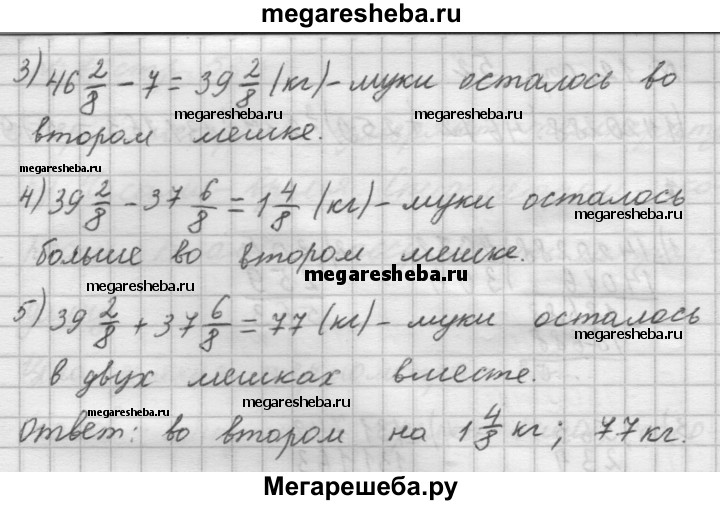 megaresheba.ru
3) 46 2/8 - 7 = 39 2/8 (кг) - муки осталось во
megaresheba.ru megaresheba.ru
втором мешке.
megaresheba.ru
4) 39 2/8 - 37 6/8 = 1 4/8 (кг) - муки осталось
megaresheba.ru megaresheba.ru
больше во втором мешке.
megaresheba.ru
megaresheba.ru megaresheba.ru
5) 39 2/8 + 37 6/8 = 77 (кг) - муки осталось
megaresheba.ru
в двух мешках вместе.
megaresheba.ru megaresheba.ru
Ответ: во втором на 1 4/8 кг; 77 кг.
Мегарешеба.ру